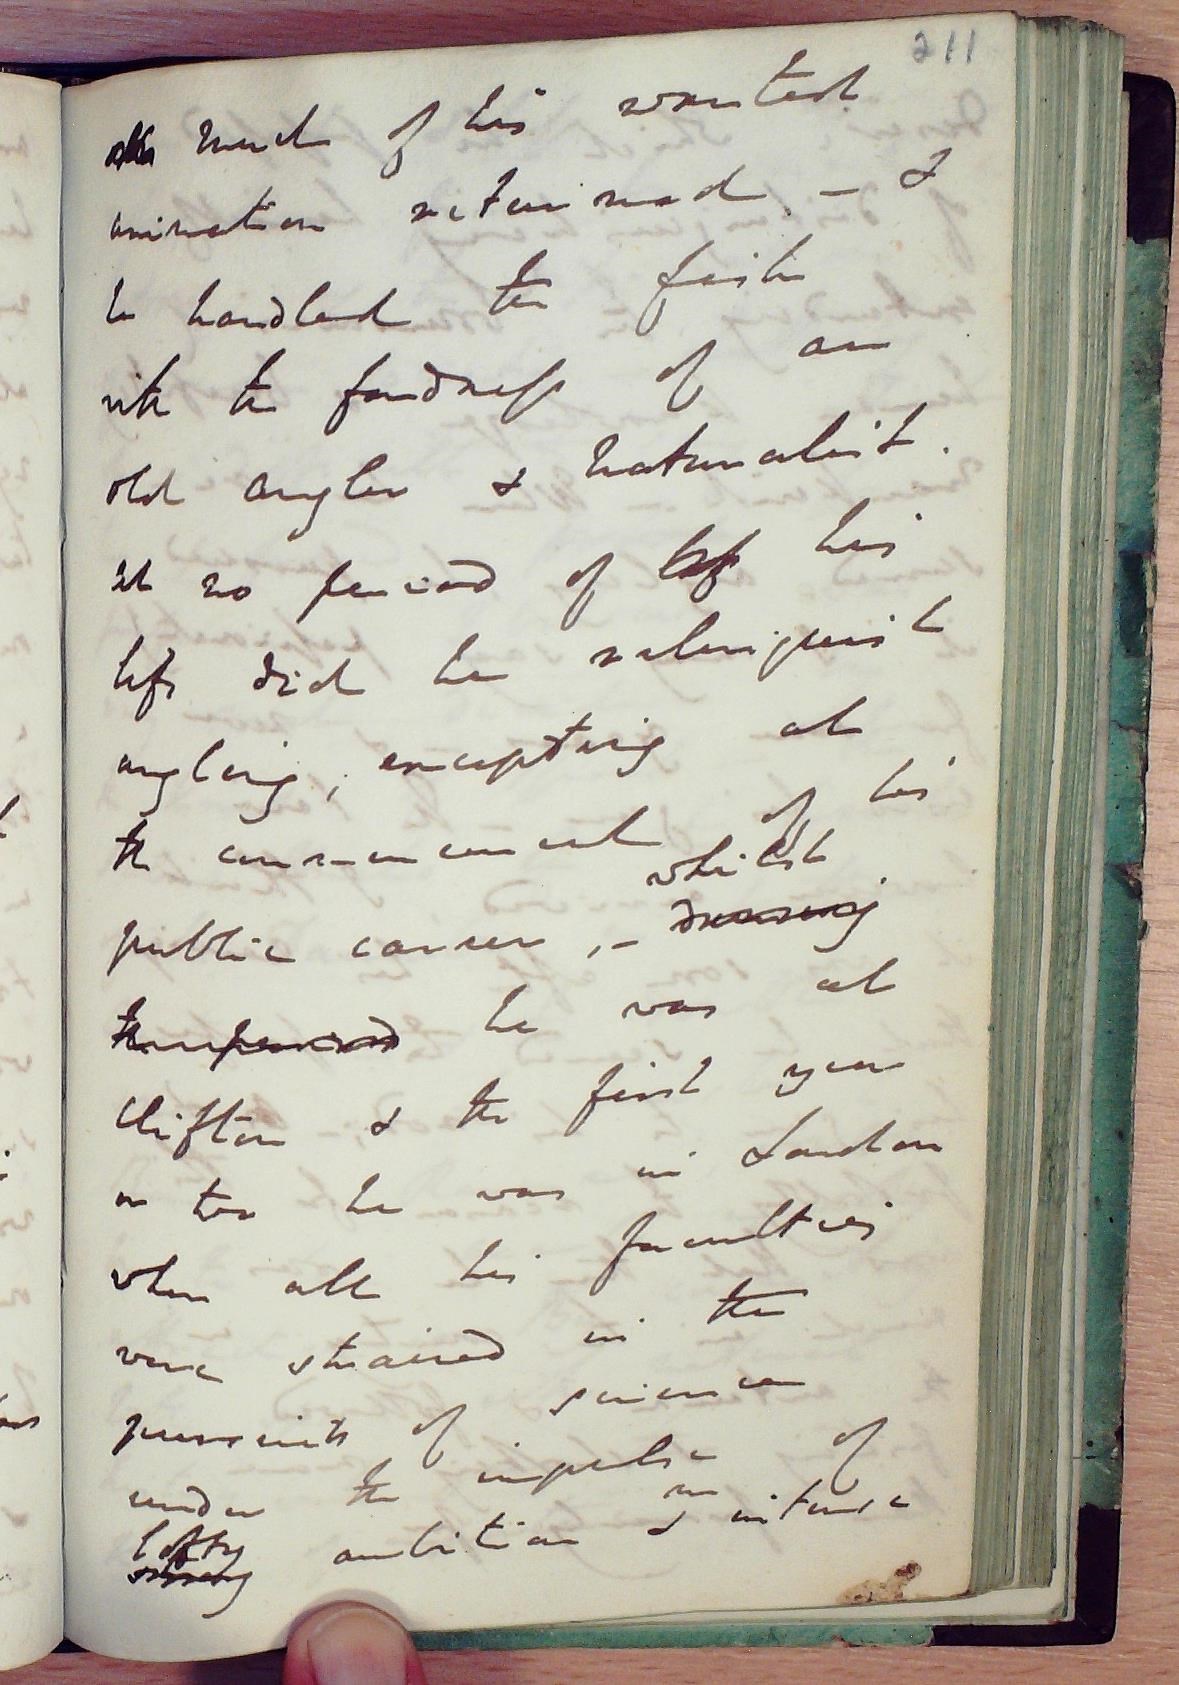 211
much of his wonted
animation returned. – &
he handled the fish
with the fondness of an
old angler & naturalist.
At no period of his
life did he relinquish
angling, excepting at
the commencement of his
whilst
public career, – during
the period he was at
Clifton & the first year
or two he was in London
when all his faculties
were strained in the
pursuits of science
under the impulse of
lofty an
ambition & intense